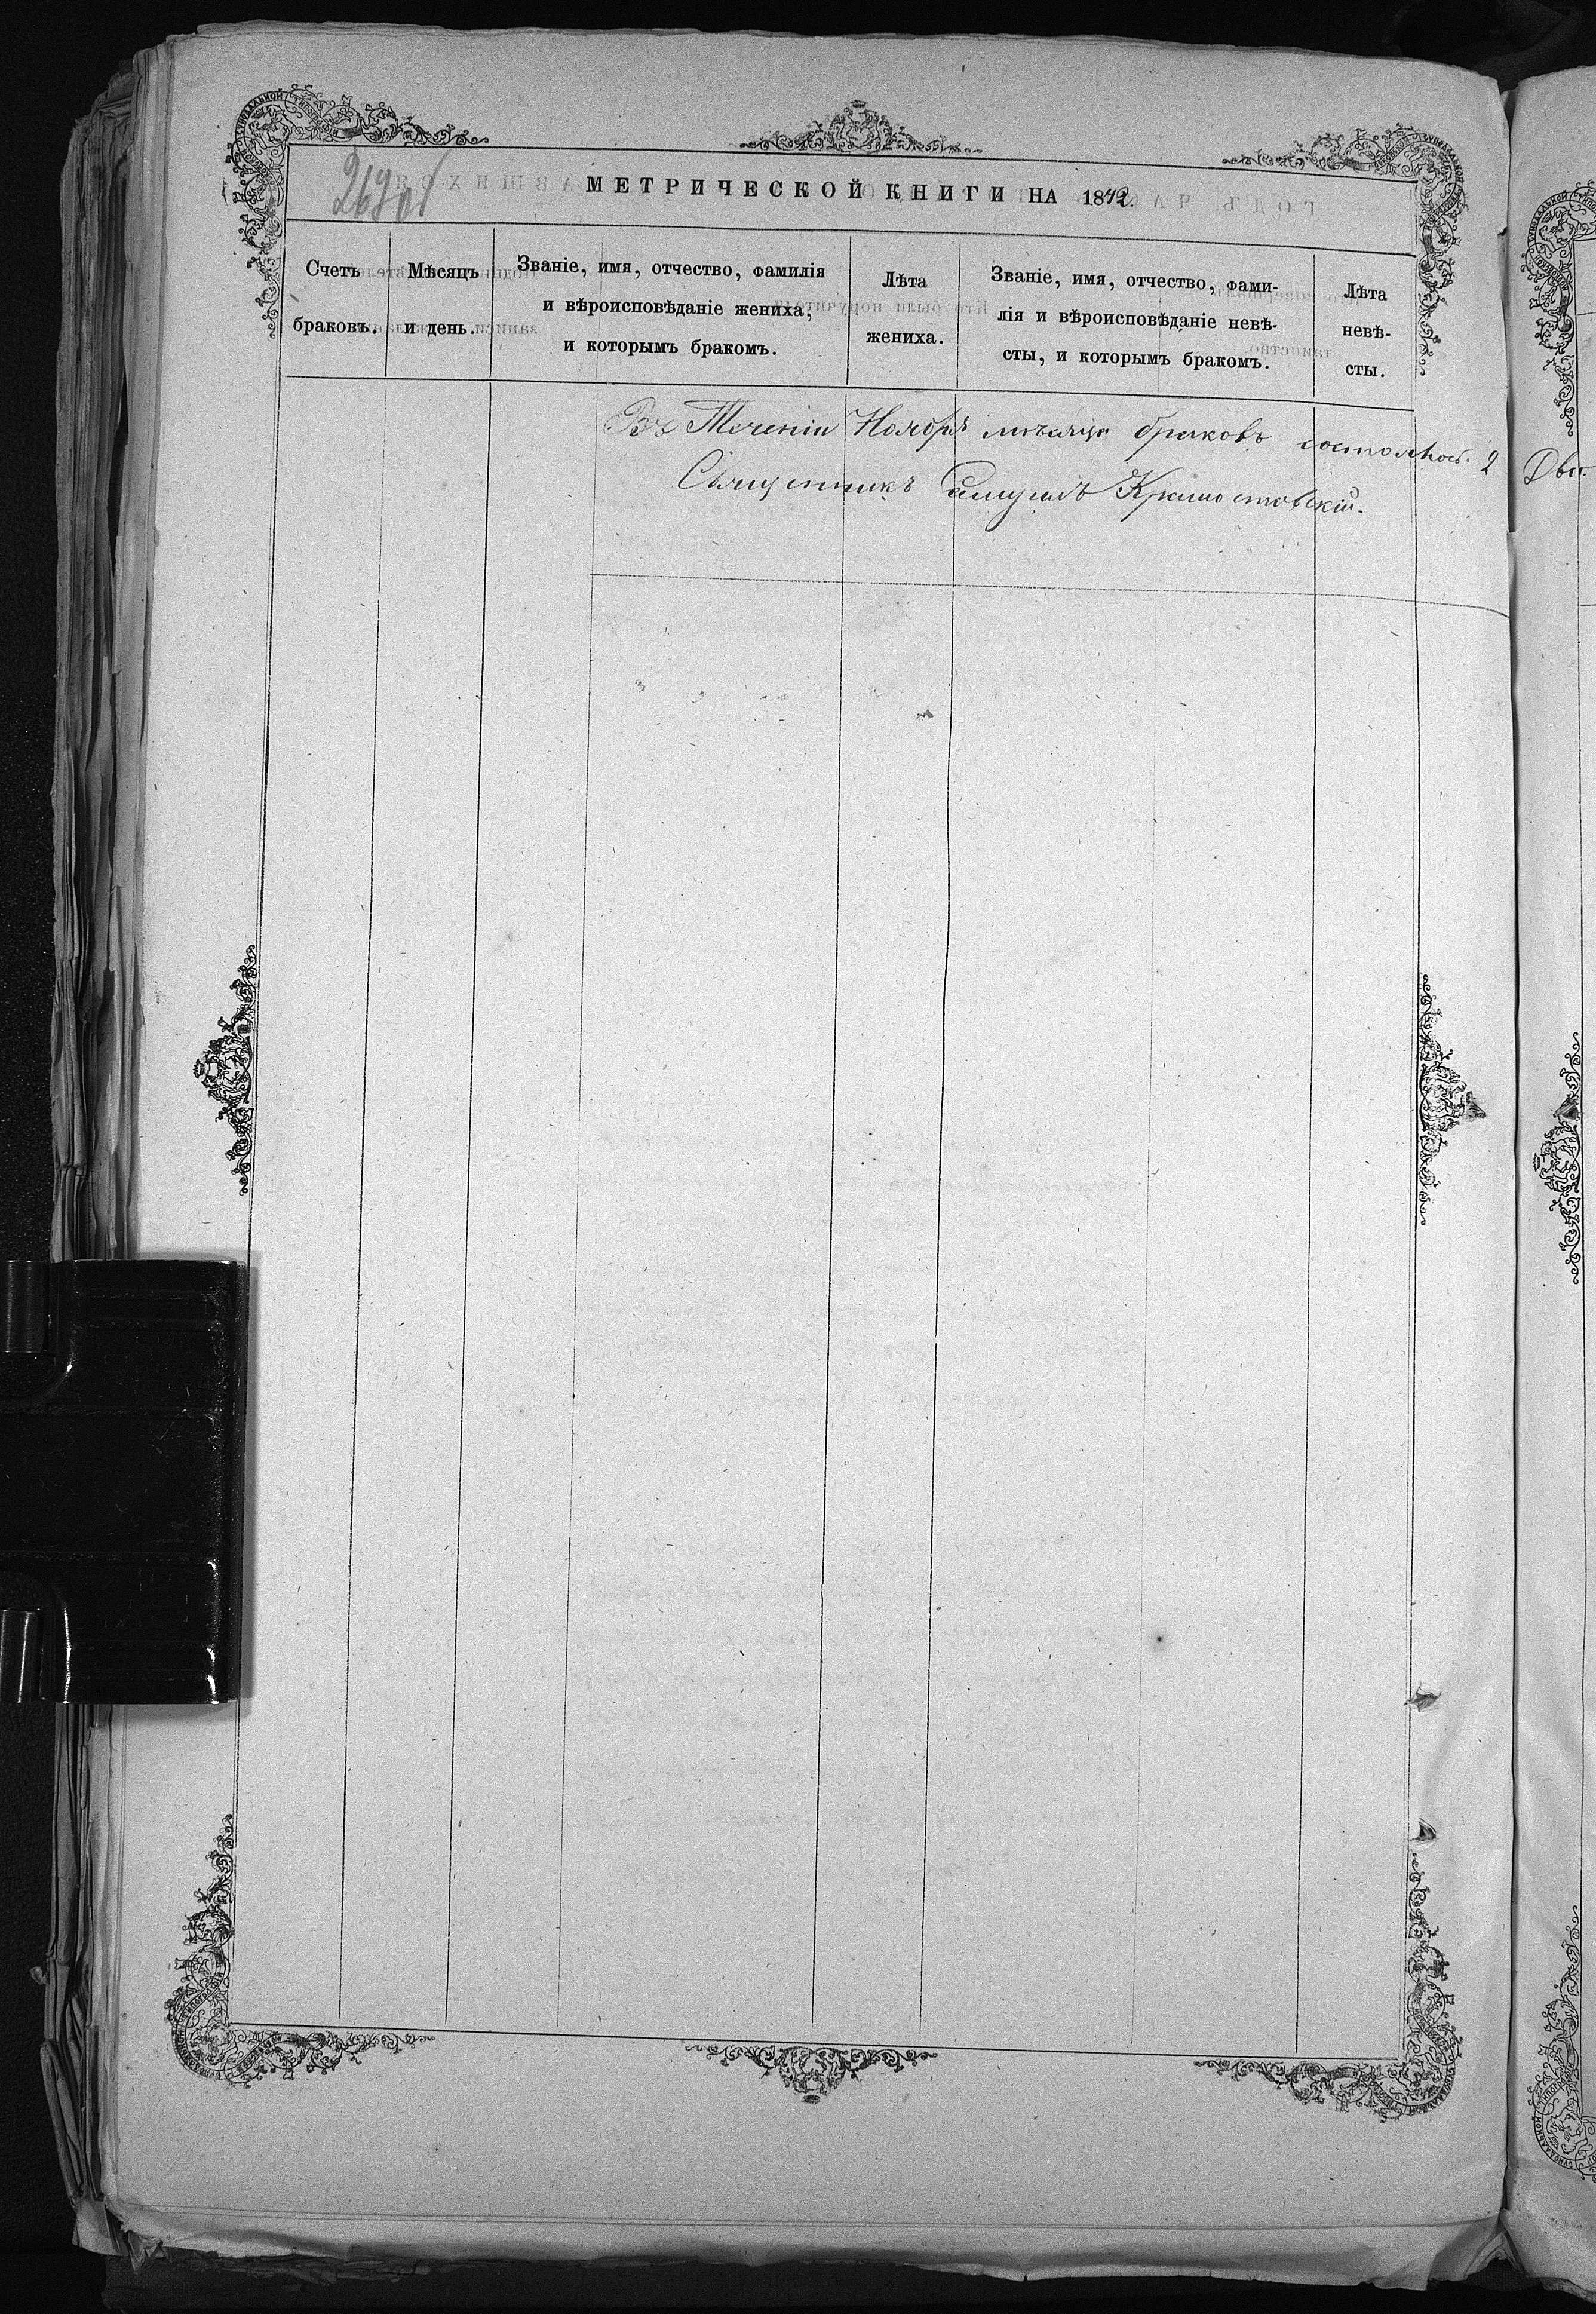 269 об
МЕТРИЧЕСКОЙ КНИГИ НА 1872.
Счетъ браковъ.
Мѣсяцъ и день.
Званіе, имя, отчество, фамилія
и вѣроисповѣданіе жениха,
и которымъ бракомъ.
Лѣта
жениха.
Званіе, имя, отчество, фами-
лія и вѣроисповѣданіе невѣ-
сты, и которымъ бракомъ.
Лѣта
невѣ-
сты.
Въ Теченіи Ноября мѣсяца браковъ состоялось. 2
Священникъ Самуилъ